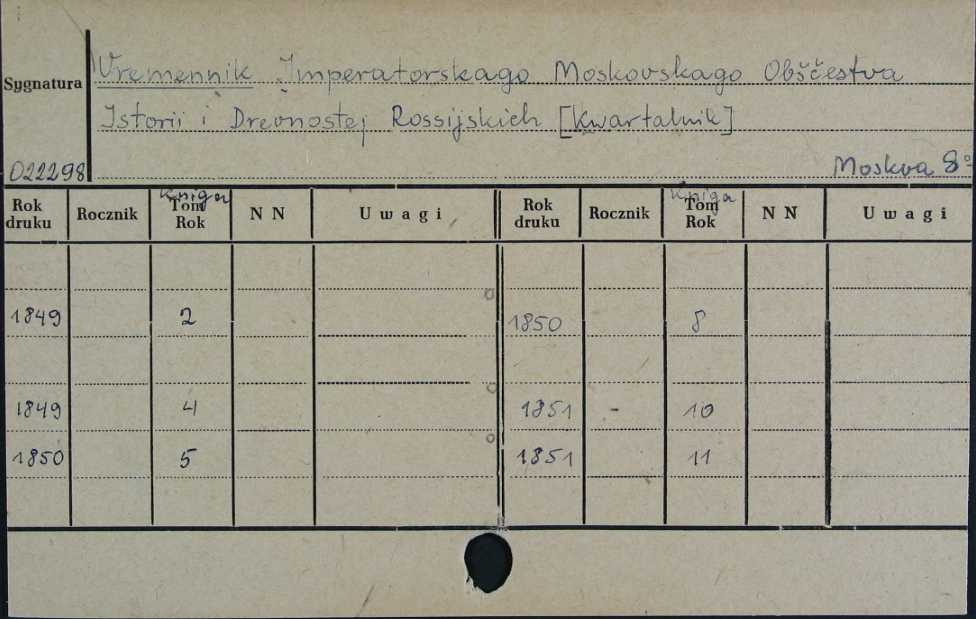 Vremennik Imperatorskago Moskovskago Obščestva
Sygnatura
Istorii i Drevnostej Rossijskich [Kwartalnik]
022298 Moskva 8°
Kniga Kniga
Rok druku Rocznik Tom Rok N N Uwagi Rok druku Rocznik Tom Rok N N Uwagi
1849 2 1850 8
1849 4 1851 - 10
1850 5 1851 11